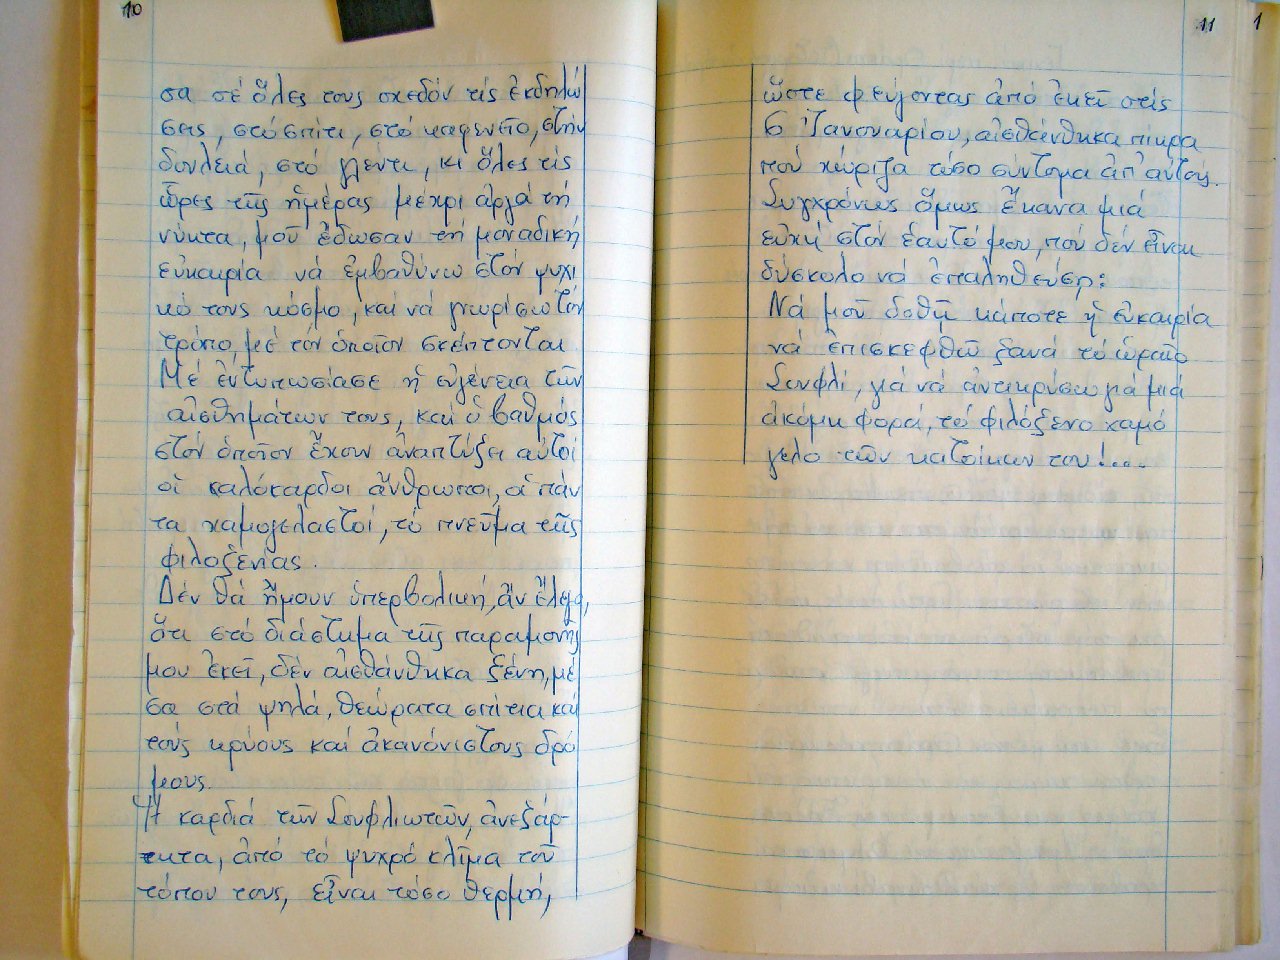 10
σα σέ ὅλες τους σχεδόν τίς ἐκδηλώ
σεις, στό σπίτι, στό καφενεῖο, στήν
δουλειά, στό γλέντι, κι ὅλες τίς
ὧρες τῆς ἡμέρας μέχρι ἀργά τή
νύκτα, μοῦ ἔδωσαν τή μοναδική
εὐκαιρία νά ἐμβαθύνω στόν ψυχι
κό τους κόσμο, καί νά γνωρίσω τόν
τρόπο, μέ τόν ὁποῖον σκέπτονται.
Μέ ἐντυπωσίασε ἡ εὐγένεια τῶν
αἰσθημάτων τους, καί ὁ βαθμός
στόν ὁποῖον ἔχουν ἀναπτύξει αὐτοί
οἱ καλόκαρδοι ἄνθρωποι, οἱ πάν
τα χαμογελαστοί, τό πνεῦμα τῆς
φιλοξενίας.
Δέν θά ἤμουν ὑπερβολική, ἄν ἔλεγα,
ὅτι στό διάστημα τῆς παραμονῆς
μου ἐκεῖ, δέν αἰσθάνθηκα ξένη, μέ
σα στά ψηλά, θεώρατα σπίτια καί
τούς κρύους καί ἀκανόνιστους δρό
μους.
Ἡ καρδιά τῶν Σουφλιωτῶν, ἀνεξάρ-
τητα, ἀπό τό ψυχρό κλῖμα τοῦ
τόπου τους, εἶναι τόσο θερμή,
11
1
ὥστε φεύγοντας ἀπό ἐκεῖ στίς
6 Ἰανουαρίου, αἰσθάνθηκα πίκρα
πού χώριζα τόσο σύντομα ἀπ' αὐτούς.
Συγχρόνως ὅμως ἔκανα μιά
εὐχή στόν ἑαυτό μου, πού δέν εἶναι
δύσκολο νά ἐπαληθεύσῃ:
Νά μοῦ δοθῇ κάποτε ἡ εὐκαιρία
νά ἐπισκεφθῶ ξανά τό ὡραῖο
Σουφλί, γιά νά ἀντικρύσω γιά μιά
ἀκόμη φορά, τό φιλόξενο χαμό
γελο τῶν κατοίκων του!...